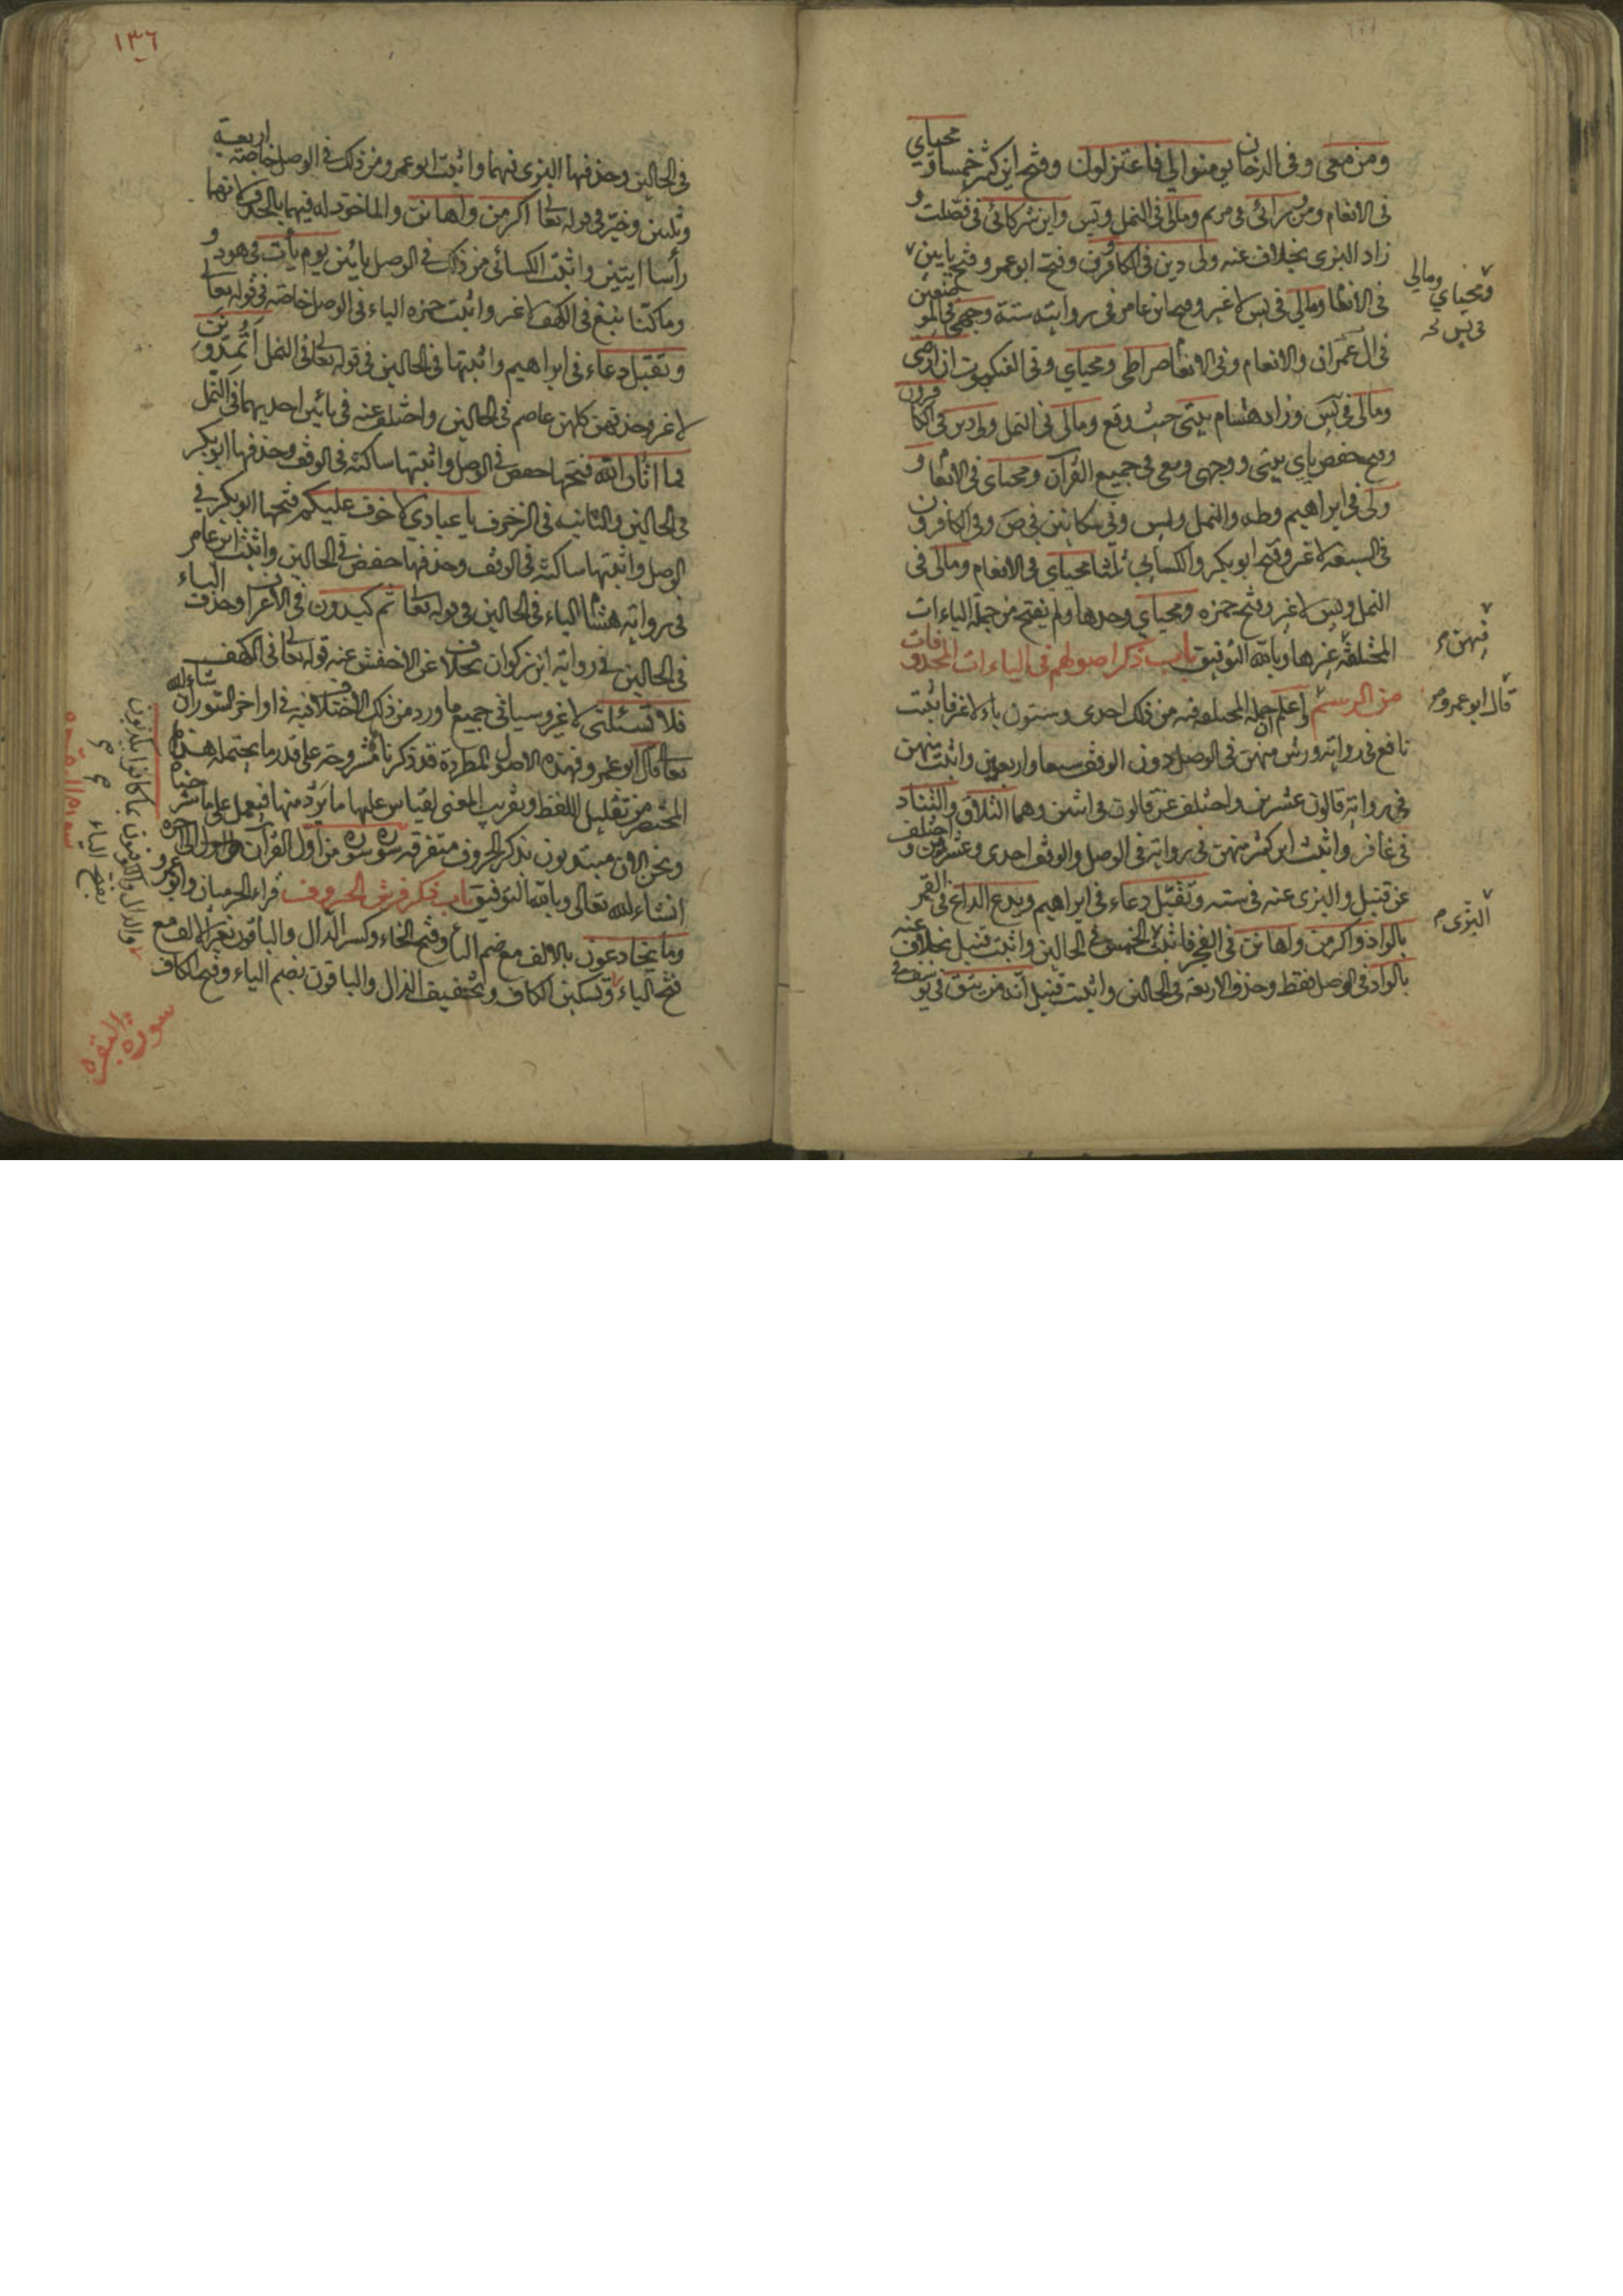 ومن معي وفي الدخان يومنوا لي فاعتزلون وفتح ابن كثير خمسا محياي
في الانعام ومن ورائي في مريم ومالي في النمل ويس واين شركائي في فصلت و
زاد البزي بخلاف عنه ولي دين في الكافرون وفتح ابو عمرو ياءين
ومحياي ومالي في يس
في الانعام ومالي في يس لا غير وفتح ابن عامر في روايتيه ستة وجهي في الموضعين
في ال عمران والانعام وفي الانعام صراطي ومحياي وفي العنكبوت ان ارضي
ومالي في يس وزاد هشام بيتي حيث وقع ومالي في النمل ولي دين في الكافرون
وفتح حفص ياي بيتي ووجهي ومعي في جميع القران ومحياي في الانعام و
ولي في ابراهيم وطه والنمل ويس وفي مكانين في ص وفي الكافرون
في السبعة لا غير وفتح ابو بكر والكسائي ثلثا محياي في الانعام ومالي في
النمل ويس لا غير وفتح حمزه ومحياي وحدها ولم يفتح من جملة الياءات
فيهن
المختلفة غيرها وبالله التوفيق باب ذكر اصولهم في الياءات المحذوفات
من الرسم واعلم ان جملة المختلف فيه من ذلك احدى وستون ياء لا غير فاثبت
قال ابو عمرو
نافع في رواية ورش منهن في الوصل دون الوقف سبعا واربعين واثبت منهن
في رواية قالون عشرين واختلف عن قالون في اثنين وهما التلاق والتناد
في غافر واثبت ابن كثير منهن في روايتيه في الوصل والوقف احدى وعشرين واختلف
عن قنبل والبزي عنه في ستة وتقبل دعاء في ابراهيم ويدع الداع في القمر
البزي
بالواد واكرمن واهانن في الفجر فاثبت الخمس في الحالين واثبت قنبل بخلاف عنه
بالواد في الوصل فقط وحذف الاربعة في الحالين واثبت قنبل انه من يتق في يوسف في
١٣٦
في الحالين وحذفها البزي فيهما واثبت ابو عمرو من ذلك في الوصل خاصة اربعة
وثلثين وخير في قوله تعالى اكرمن واهانن والماخوذ له فيهما بالحذف لانهما
رأسا ايتين واثبت الكسائي من ذلك في الوصل يائين يوم يأت في هود و
وما كنا نبغ في الكهف لا غير واثبت حمزه الياء في الوصل خاصة في قوله تعالى
وتقبل دعاء في ابراهيم واثبتها في الحالين في قوله تعالى في النمل اتمدونن
لا غير وحذفهن كلهن عاصم في الحالين واختلف عنه في يائين احديهما في النمل
فما اتان الله فتحها حفص في الوصل واثبتها ساكنة في الوقف وحذفها ابو بكر
في الحالين والثانية في الزخرف يا عبادي لا خوف عليكم فتحها ابو بكر في
الوصل واثبتها ساكنة في الوقف وحذفها حفص في الحالين واثبت ابن عامر
في رواية هشام الياء في الحالين في قوله تعالى ثم كيدون في الاعراف وحذف الياء
في الحالين في رواية ابن ذكوان بخلاف عن الاخفش عنه قوله تعالى في الكهف
فلا تسئلني لا غير وسياتي جميع ما ورد من ذلك الاختلاف فيه في اواخر السور ان شاء الله
تعالى قال ابو عمرو فهذه الاصول المطردة قد ذكرناها مشروحة على قدر ما يحتمله هذا
المختصر من تقليل اللفظ وتقريب المعنى لقياس عليها ما يرد منها فيعمل على ما شرحناه
ونحن الان مبتدون بذكر الحروف متفرقة سورة سورة من اول القران الى اخره
انشاء الله تعالى وبالله التوفيق باب ذكر فرش الحروف قراء الحرميان وابو عمرو
وما يخادعون بالالف مع ضم الياء وفتح الخاء وكسر الدال والباقون بغير الالف مع
فتح الياء وتسكين الكاف وتخفيف الذال والباقون بضم الياء وفتح الكاف
والدال والكوفيون بما كانوا يكذبون
بفتح الياء
سورة البقرة